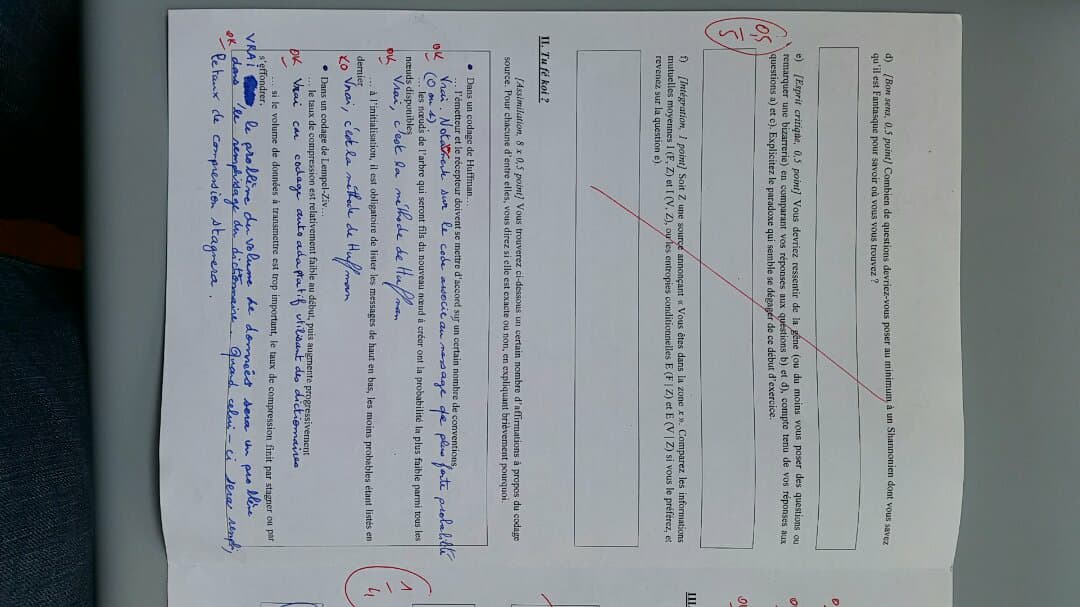 d) [Bon sens, 0,5 point] Combien de questions devriez-vous poser au minimum à un Shannonien dont vous savez
qu'il est Fantasque pour savoir où vous vous trouvez ?
e) [Esprit critique, 0,5 point] Vous devriez ressentir de la gêne (ou du moins vous poser des questions ou
remarquer une bizarrerie) en comparant vos réponses aux questions b) et d), compte tenu de vos réponses aux
questions a) et c). Explicitez le paradoxe qui semble se dégager de ce début d'exercice.
0,5
5
f) [Intégration, 1 point] Soit Z une source annonçant « Vous êtes dans la zone x ». Comparez les informations
mutuelles moyennes I (F, Z) et I (V, Z), ou les entropies conditionnelles E (F | Z) et E (V | Z) si vous le préférez, et
revenez sur la question e).
III.
II. Tu fé koi ?
[Assimilation, 8 x 0,5 point] Vous trouverez ci-dessous un certain nombre d'affirmations à propos du codage
source. Pour chacune d'entre elles, vous direz si elle est exacte ou non, en expliquant brièvement pourquoi.
• Dans un codage de Huffman…
… l'émetteur et le récepteur doivent se mettre d'accord sur un certain nombre de conventions
OK Vrai. Notamment sur le code associé au message de plus forte probabilité
(0 ou 1).
… les nœuds de l'arbre qui seront fils du nouveau nœud à créer ont la probabilité la plus faible parmi tous les
nœuds disponibles
OK Vrai, c'est la méthode de Huffman
… à l'initialisation, il est obligatoire de lister les messages de haut en bas, les moins probables étant listés en
dernier
KO Vrai, c'est la méthode de Huffman
1
4
• Dans un codage de Lempel-Ziv…
… le taux de compression est relativement faible au début, puis augmente progressivement
OK Vrai car codage auto adaptatif utilisant des dictionnaires
… si le volume de données à transmettre est trop important, le taux de compression finit par stagner ou par
s'effondrer.
VRAI, le problème du volume de données sera un problème
OK dans le remplissage du dictionnaire. Quand celui-ci sera rempli,
le taux de compression stagnera.